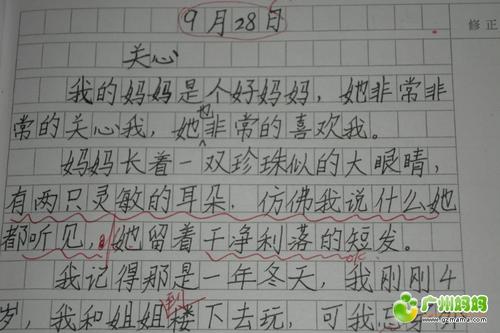 9月28日
修正
关心
我的妈妈是个好妈妈，她非常非
常的关心我，她也非常的喜欢我。
妈妈长着一双珍珠似的大眼睛，
有两只灵敏的耳朵，仿佛我说什么她
都听见，她留着干净利落的短发。
我记得那是一年冬天，我刚刚4
岁，我和姐姐到楼下去玩，可我忘
广州妈妈
www.gzmama.com